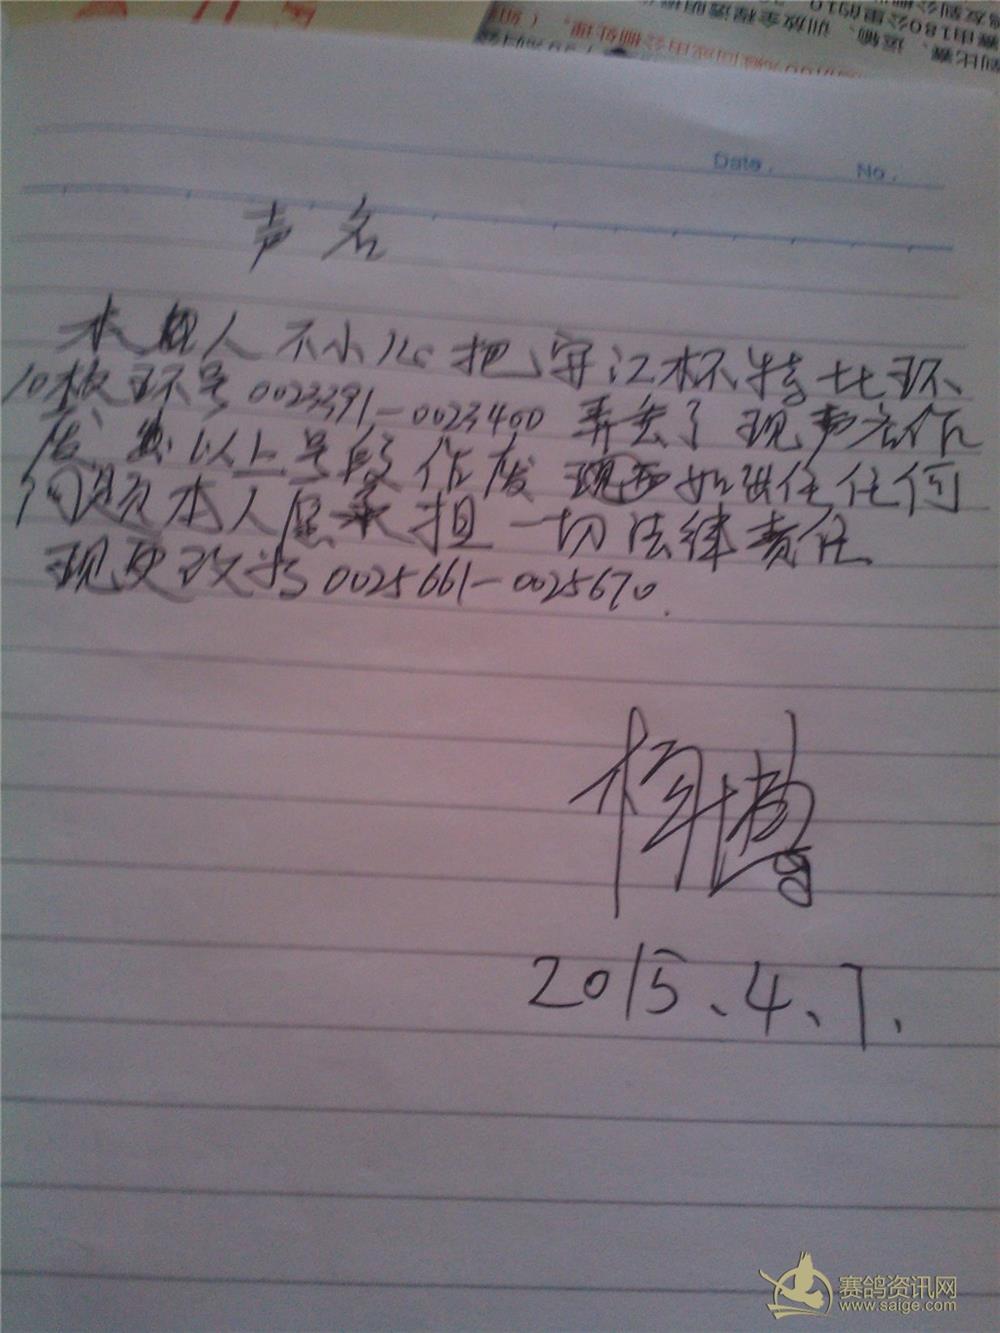 Date.
No.
声名
本人不小心把 江杯特比环
10枚环号0023391-0023400弄丢了现声名作
废 以上号段作废 现 如出任任何
问题本人愿承担一切法律责任
现更改为0025661-0025670.
杨
2015、4、7、
赛鸽资讯网
www.saige.com